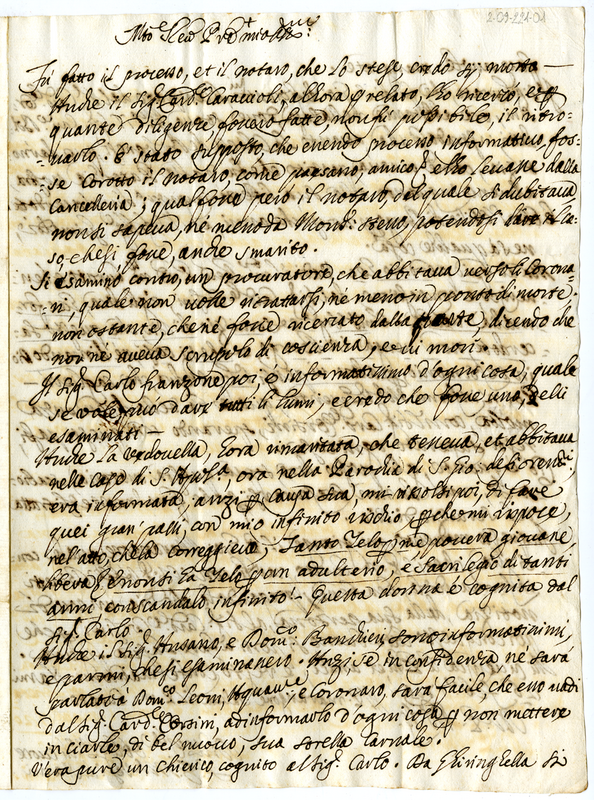 2-09-221-01
Fù fatto il processo, et il notaro, che lo stese, credo sij morto
Anche il Sig.r Card.l Caraccioli, allora prelato, l'hò ricerco, e per
quante diligenze furono fatte, non fù possibile, il ritro-
varlo. È stato supposto, che essendo processo informativo, fos-
se corotto il notaro, come paesano, amico, e lo levasse dalla
Cancelleria; qual fosse però il notaro, del quale si dubitava
non si sapeva, né meno da Mons.r stesso, potendosi dare il ca-
so, che si fosse, anche smarito.
Si esaminò contro, un procuratore, che abbitava verso li Corona-
ri, quale non volle ritratarsi, né meno in ponto di morte,
non ostante, che né fosse ricercato dalla parte, dicendo che
non ne aveva scrupolo di coscienza, e lui morì
Il Sig.r Carlo franzone poi, è informatissimo d'ogni cosa, quale
se vole può dare tutti li lumi, e credo che fosse uno, delli
esaminati
Anche la vedovella, hora rimaritata, che teneva, et abbitava
nelle case di S. ora nella Parochia di S. Gio. de fiorentini
era informata, anzi per causa sua, mi risolsi poi, di fare
quei gran passi, con mio infinito rischio perche mi rispose,
nell'atto, che la correggievo, Tanto zelo per me povera giovane
libera, e non si hà zelo per un adulterio, e sacrilegio di tanti
anni con scandalo infinito. Questa donna è cognita dal
Sig.r Carlo.
Anche il Sig.r Ansano, e Dom.co Banchieri, sono informatissimi,
e parmi, che si esaminassero. Anzi se in confidenza né sarà
parlato à Dom.co Leoni, e Coronaro, sarà facile, che esso vadi
dal Sig.r Card.l Corsini, ad informarlo d'ogni cosa per non mettere
in ciarle, di bel nuovo, sua sorella carnale.
V'era pure un chierico, cognito al Sig.r Carlo. Da si